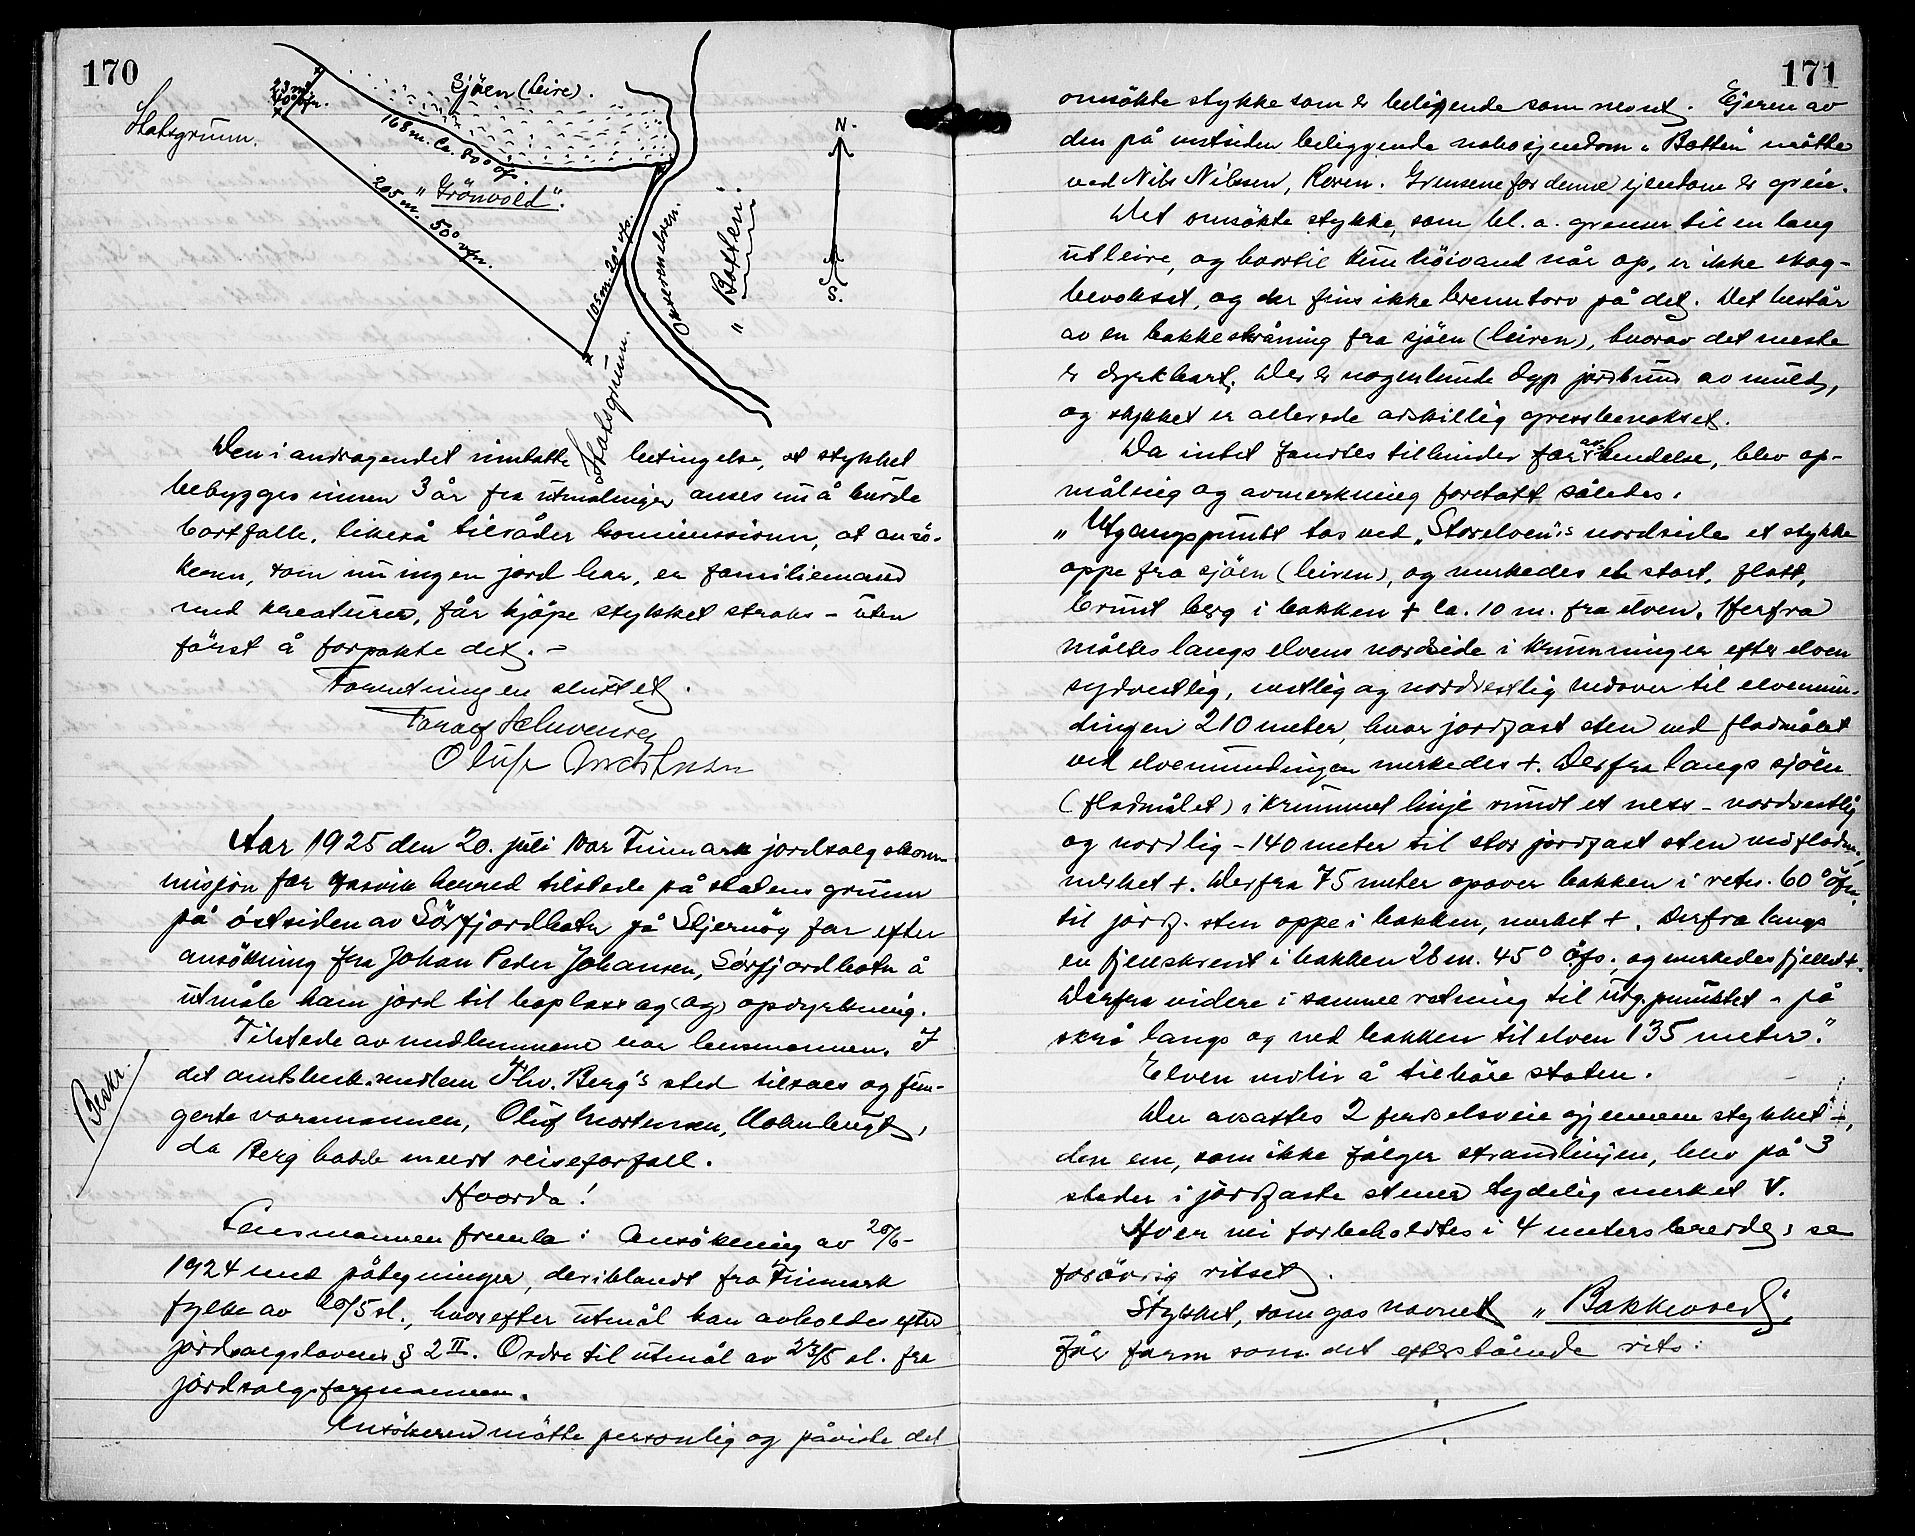 170
Statsgrunn.
23 m.
Sjöen (leire).
168 m. Ca. 800 öfs.
"Grönvold".
205 m. 50° vfn.
105 m. 20° vfs.
Statsgrunn.
elven.
"Botten".
N.
S.
Den i andragendet inntatte betingelse, at stykket
bebygges innen 3 år fra utmålinger anses nu å burde
bortfalle, likeså tilråder kommissionen, at ansö-
keren, som nu ingen jord har, er familiemand
med kreaturer, får kjöpe stykket straks – uten
först å forpakte det. –
Forretningen sluttet.
Oluf Mortensen
Aar 1925 den 20. juli var Finmark jordsalgskom-
misjon for herred tilstede på statens grunn
på östsiden av Sörfjordbotn på Stjernöy for efter
ansökning fra Johan Peder Johansen, Sörfjordbotn å
utmåle ham jord til boplass og (og) opdyrkning.
Tilstede av medlemmene var lensmannen. I
det amtsbesk. medlem Thv. Berg's sted tilsaes og fun-
gerte varamannen, Oluf Mortensen,
da Berg hadde meldt reiseforfall.
Beskr.
Hvorda!
Lensmannen fremla: Ansökning av 20/6-
1924 med påtegninger, deriblandt fra Finmark
fylke av 20/5 sl., hvorefter utmål kan avholdes efter
jordsalgslovens § 2 II. Ordre til utmål av 23/5 sl. fra
jordsalgsformannen.
Ansökeren mötte personlig og påviste det
171
omsökte stykke som er beliggende som nevnt. Ejeren av
den på vestsiden beliggende naboejendom "Botten" mötte
ved Nils Nilssen, Grensene for denne ejendom er greie.
Det omsökte stykke, som bl. a. grenser til en lang
utleire, og hvortil kun höivand når op, er ikke skog-
bevokset, og der fins ikke brenntorv på det. Det består
av en bakkeskråning fra sjöen (leiren), hvorav det meste
er dyrkbart. Der er nogenlunde dyp jordbund av muld,
og stykket er allerede adskillig gressbevokset.
Da intet fandtes til hinder for avhendelse, blev op-
måling og avmerkning foretatt således:
"Utgangspunkt tas ved "Storelven"s nordside et stykke
oppe fra sjöen (leiren), og merkedes et stort, flatt,
brunt berg i bakken + ca. 10 m. fra elven. Herfra
måltes langs elvens nordside i krumninger efter elven
sydvestlig, vestlig og nordvestlig nedover til elvemun-
dingen 210 meter, hvor jordfast sten ved flodmålet
ved elvemundingen merkedes +. Derfra langs sjöen
(flodmålet) i krummet linje rundt et ness – nordvestlig
og nordlig – 140 meter til stor jordfast sten ved flodm.,
merket +. Derfra 75 meter opover bakken i retn. 60° öfn.
til jordf. sten oppe i bakken, merket +. Derfra langs
en fjellskrent i bakken 28 m. 45° öfs., og merkedes fjellet +.
Derfra videre i samme retning til utg.punktet – på
skrå langs og ned bakken til elven 135 meter."
Elven å tilhöre staten.
Der avsattes 2 ferdselsveie gjennem stykket –,
den ene, som ikke fölger strandlinjen, blev på 3
steder i jordfaste stener tydelig merket V.
Hver vei forbeholdtes i 4 meters bredde, se
forövrig ritset.
Stykket, som gas navnet
får form som det efterstående rits: